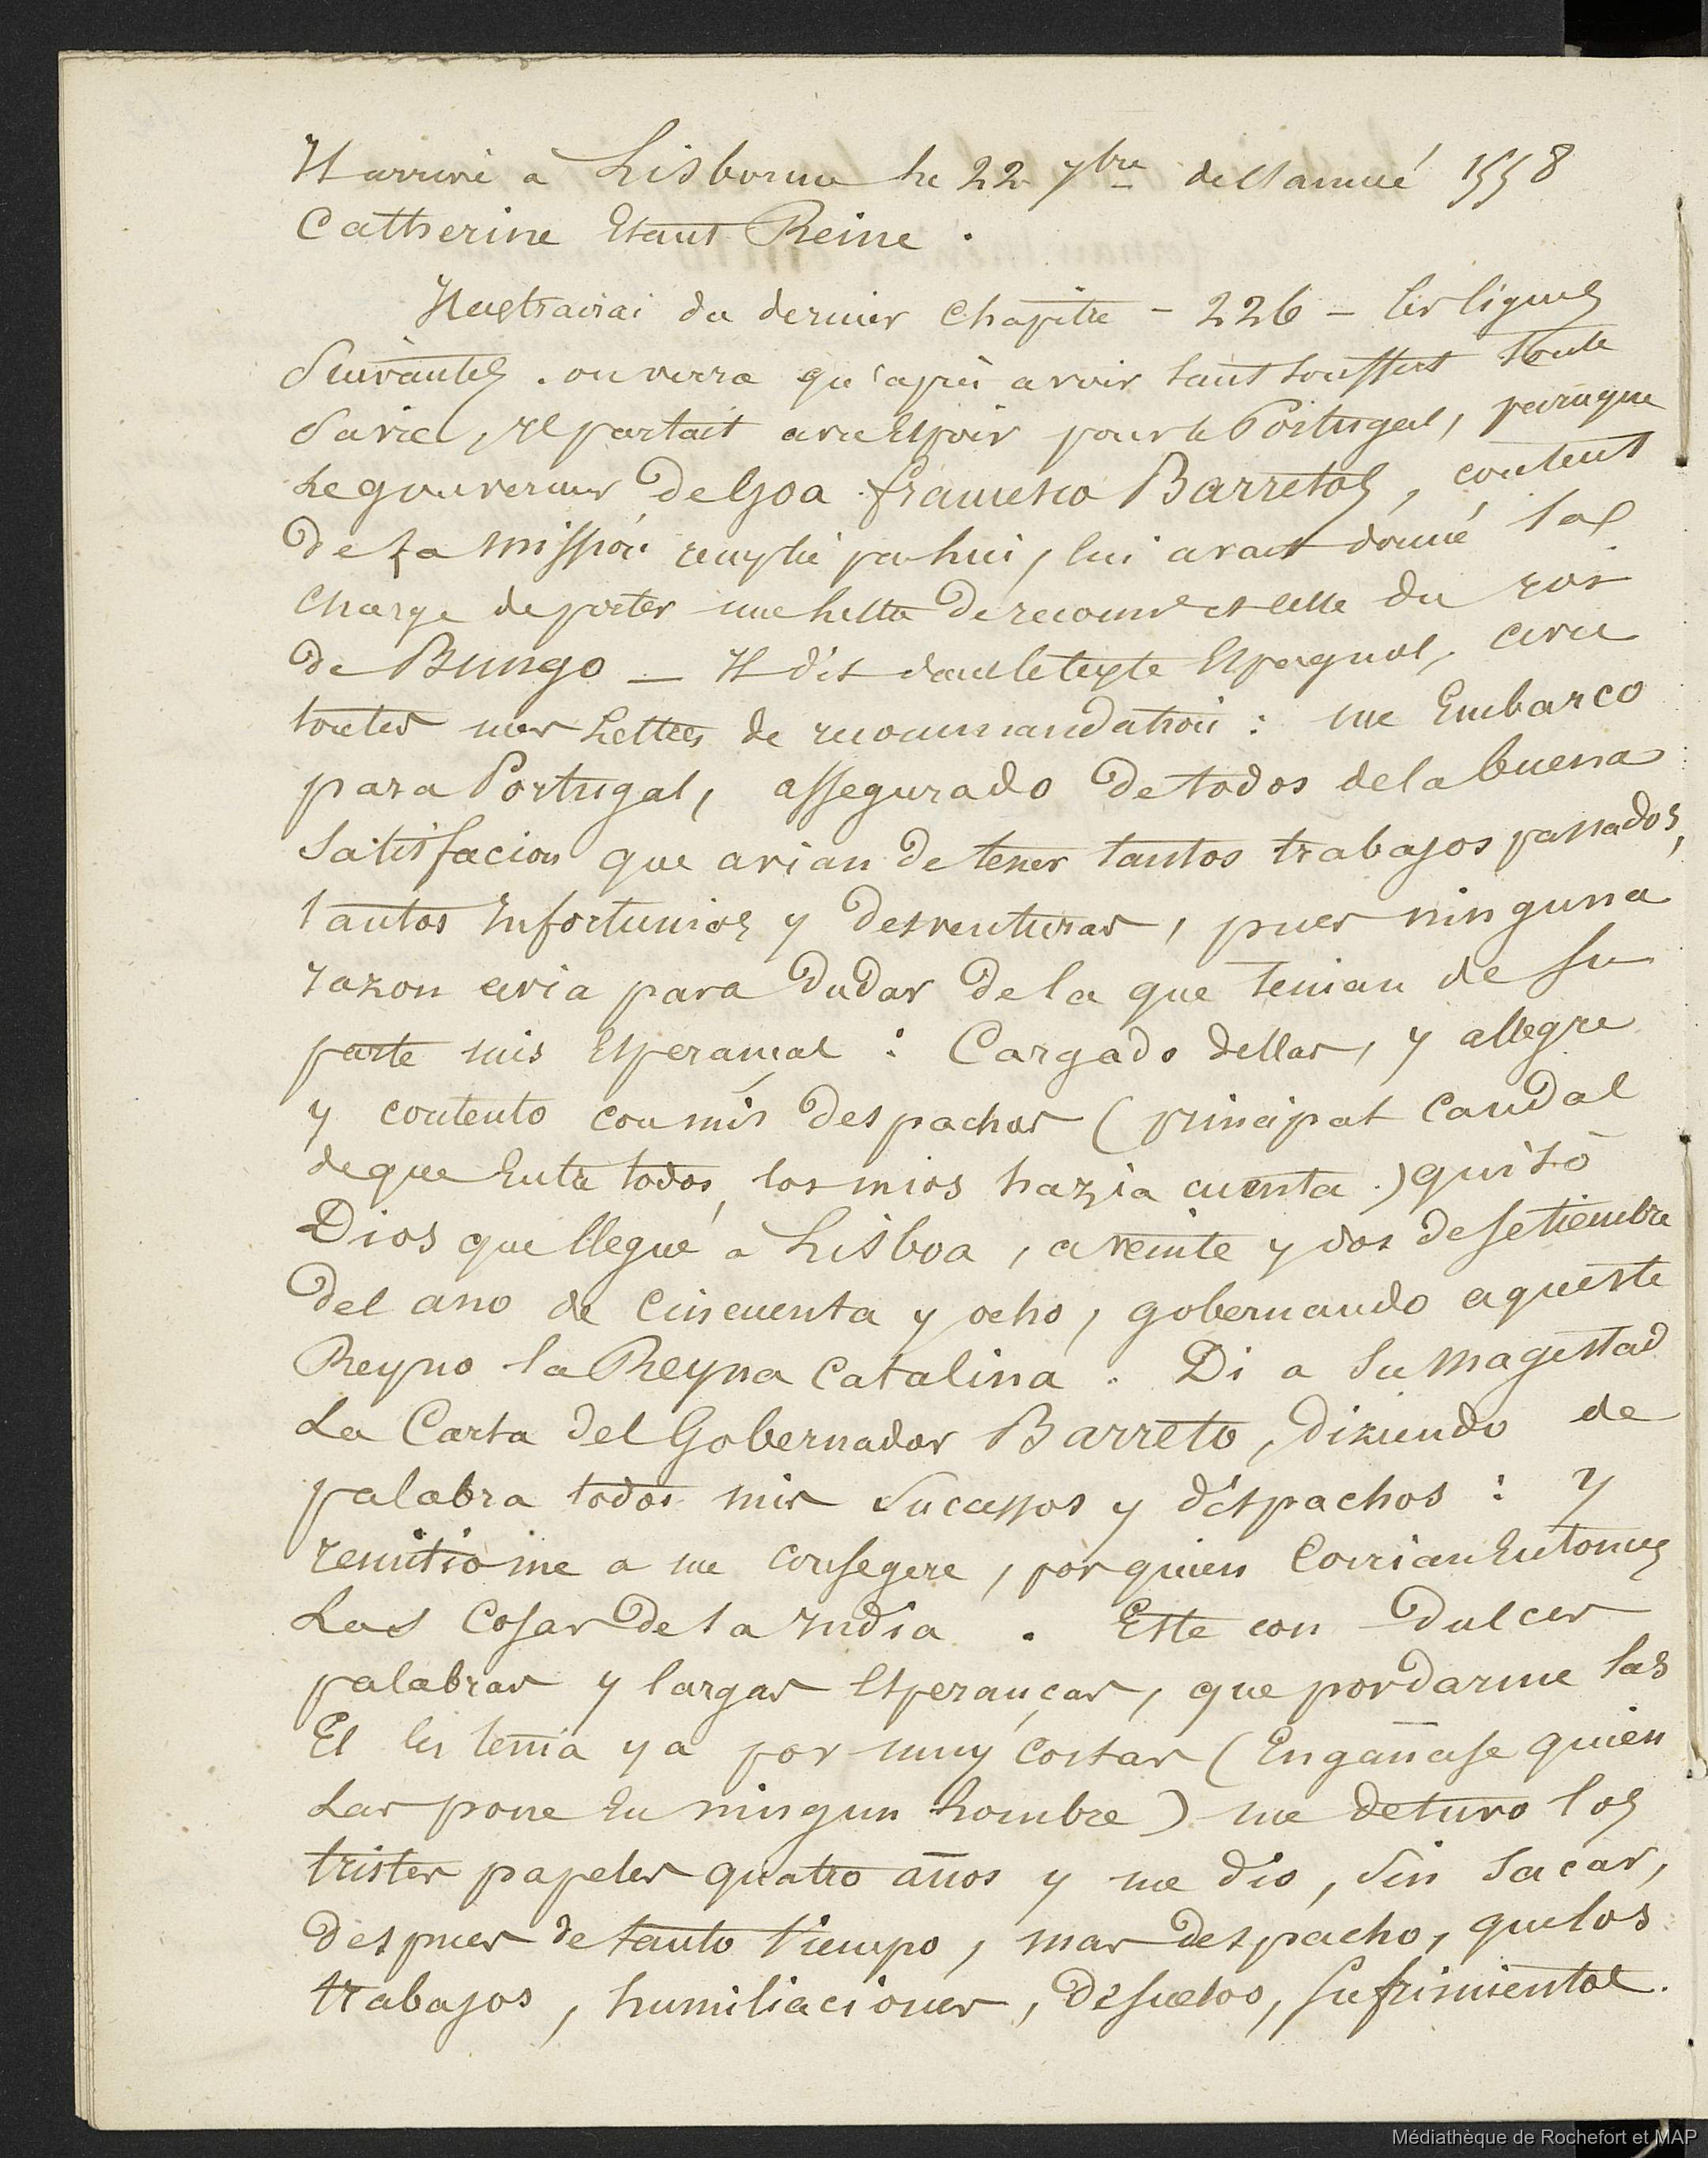 Il arrive a Lisbonne le 22 7bre de l'année 1558
Catherine Etant Reine.
J'extrairai du dernier Chapitre - 226 - les lignes
Suivantes. on verra qu'après avoir tant souffert toute
Sa vie, il partait avec Espoir pour le Portugal, puisque
Le gouverneur De Goa francisco Barretos, content
De la mission remplie par lui, lui avait donné la
Charge de porter une lettre De recom et celle du roi
De Bungo _ Il dit dans le texte Espagnol, avec
toutes mes Lettres de recommandation : me Embarco
para Portugal, assegurado De todos de la buena
Satisfacion que avian De tener tantos trabajos passados,
tantos Infortunios y Desventuras, pues ninguna
razon avia para Dudar De la que tenian de su
parte mis Esperanças : Cargado dellas, y allegre
y contento con mis Despachos (principal Caudal
de que Entre todos los mios hazia cuenta.) quisò
Dios que llegué a Lisboa, a veinte y dos de setiembre
Del ano de Cincuenta y ocho, gobernando aqueste
Reyno la Reyna Catalina. Di a Su Magestad
La Carta del Gobernador Barreto, Diziendo de
palabra todos mis Sucessos y déspachos : y
remitiòme a me consegere, por quien Corrian Entonces
Las Cosas De la India. Este con Dulces
palabras y largas Esperanças, que por Darme las
El les tenia ya por muy costar (Engañase quien
Las pone En ningun hombre) me detuvo los
tristes papeles quatro años y me dio, Sin Sacar,
Despues de tanto tiempo, mas Despacho, que los
trabajos, humiliaciones, sufrimientos.